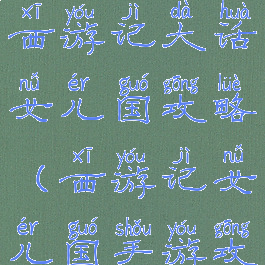 xī yóu jì dà huà
西游记大话
nǚ ér guó gōng lüè
女儿国攻略
xī yóu jì nǚ
（西游记女
ér guó shǒu yóu gōng
儿国手游攻